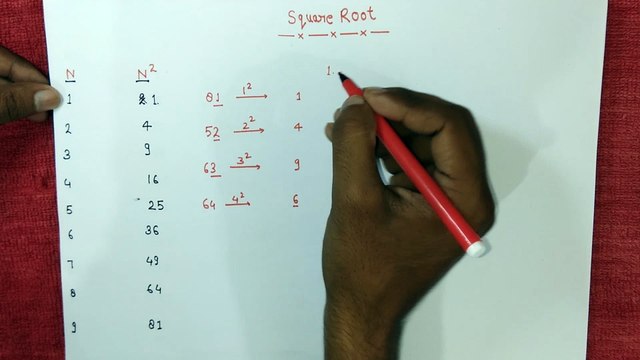 Square Root
—x—x—x—
N N²
1 1
2 4
3 9
4 16
5 25
6 36
7 49
8 64
9 81
81 1² → 1
52 2² → 4
63 3² → 9
64 4² → 6
1.